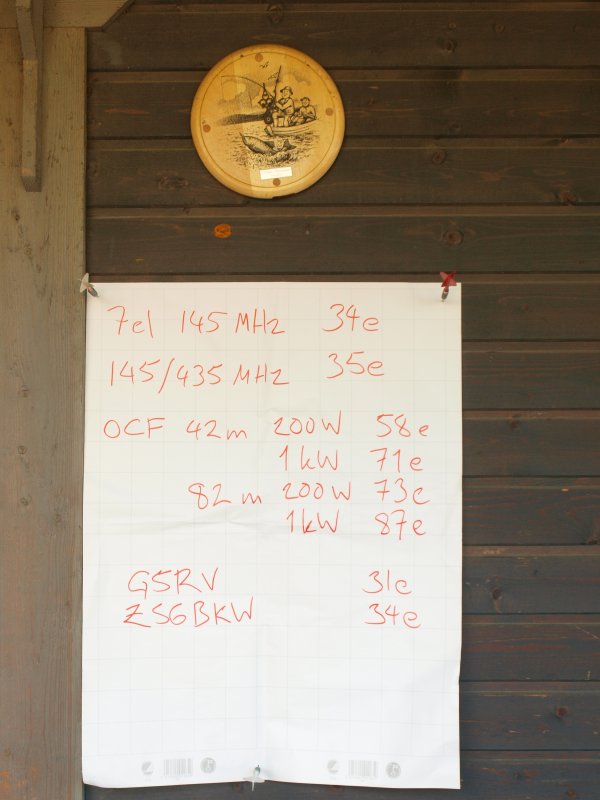 7el 145 MHz 34e
145/435 MHz 35e
OCF 42m 200W 58e
1kW 71e
82m 200W 73e
1kW 87e
G5RV 31e
ZS6BKW 34e